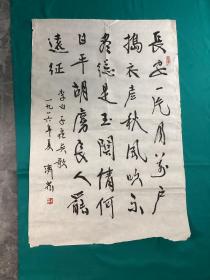 長安一片月萬户
擣衣聲秋風吹不
盡總是玉關情何
日平胡虜良人罷
遠征
李白子夜吴歌
一九八六年夏